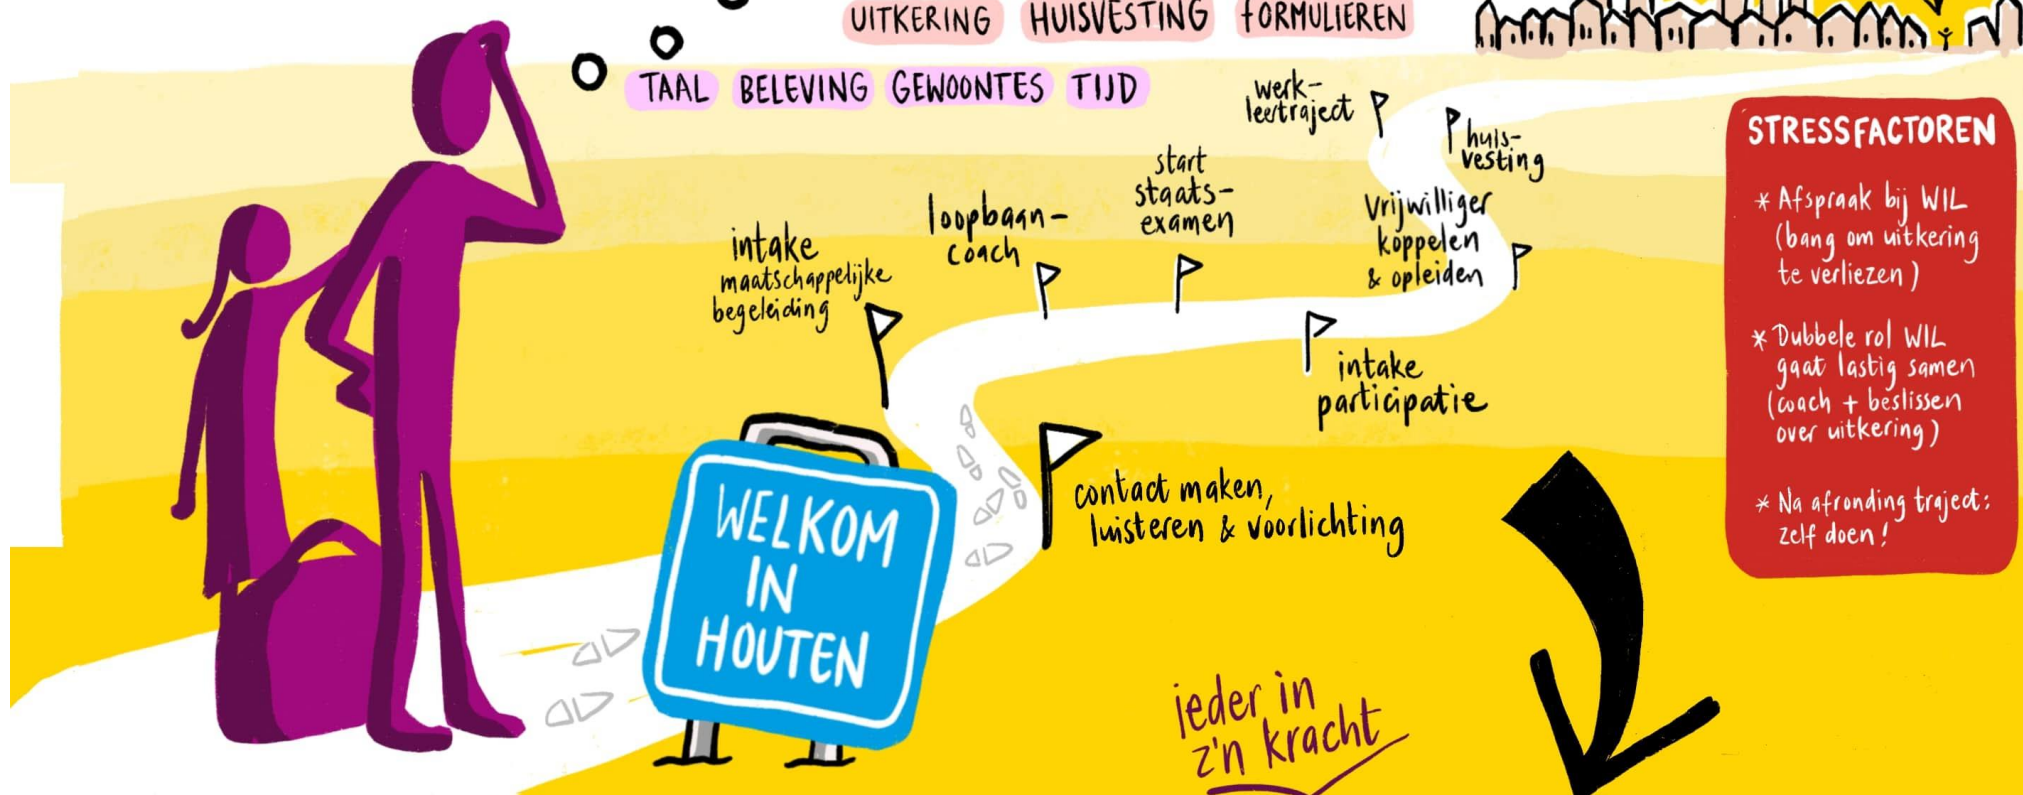 UITKERING HUISVESTING FORMULIEREN
TAAL BELEVING GEWOONTES TIJD
werk-
leertraject
huis-
vesting
start
staats-
examen
Vrijwilliger
koppelen
& opleiden
loopbaan-
coach
intake
maatschappelijke
begeleiding
intake
participatie
contact maken,
luisteren & voorlichting
WELKOM
IN
HOUTEN
ieder in
z'n kracht
STRESSFACTOREN
* Afspraak bij WIL
(bang om uitkering
te verliezen)
* Dubbele rol WIL
gaat lastig samen
(coach + beslissen
over uitkering)
* Na afronding traject:
zelf doen!